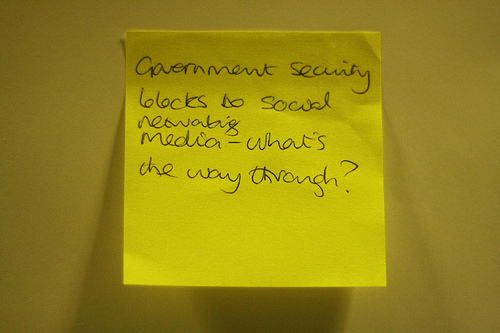 Government security
blocks to social
networking
media - what's
the way through?